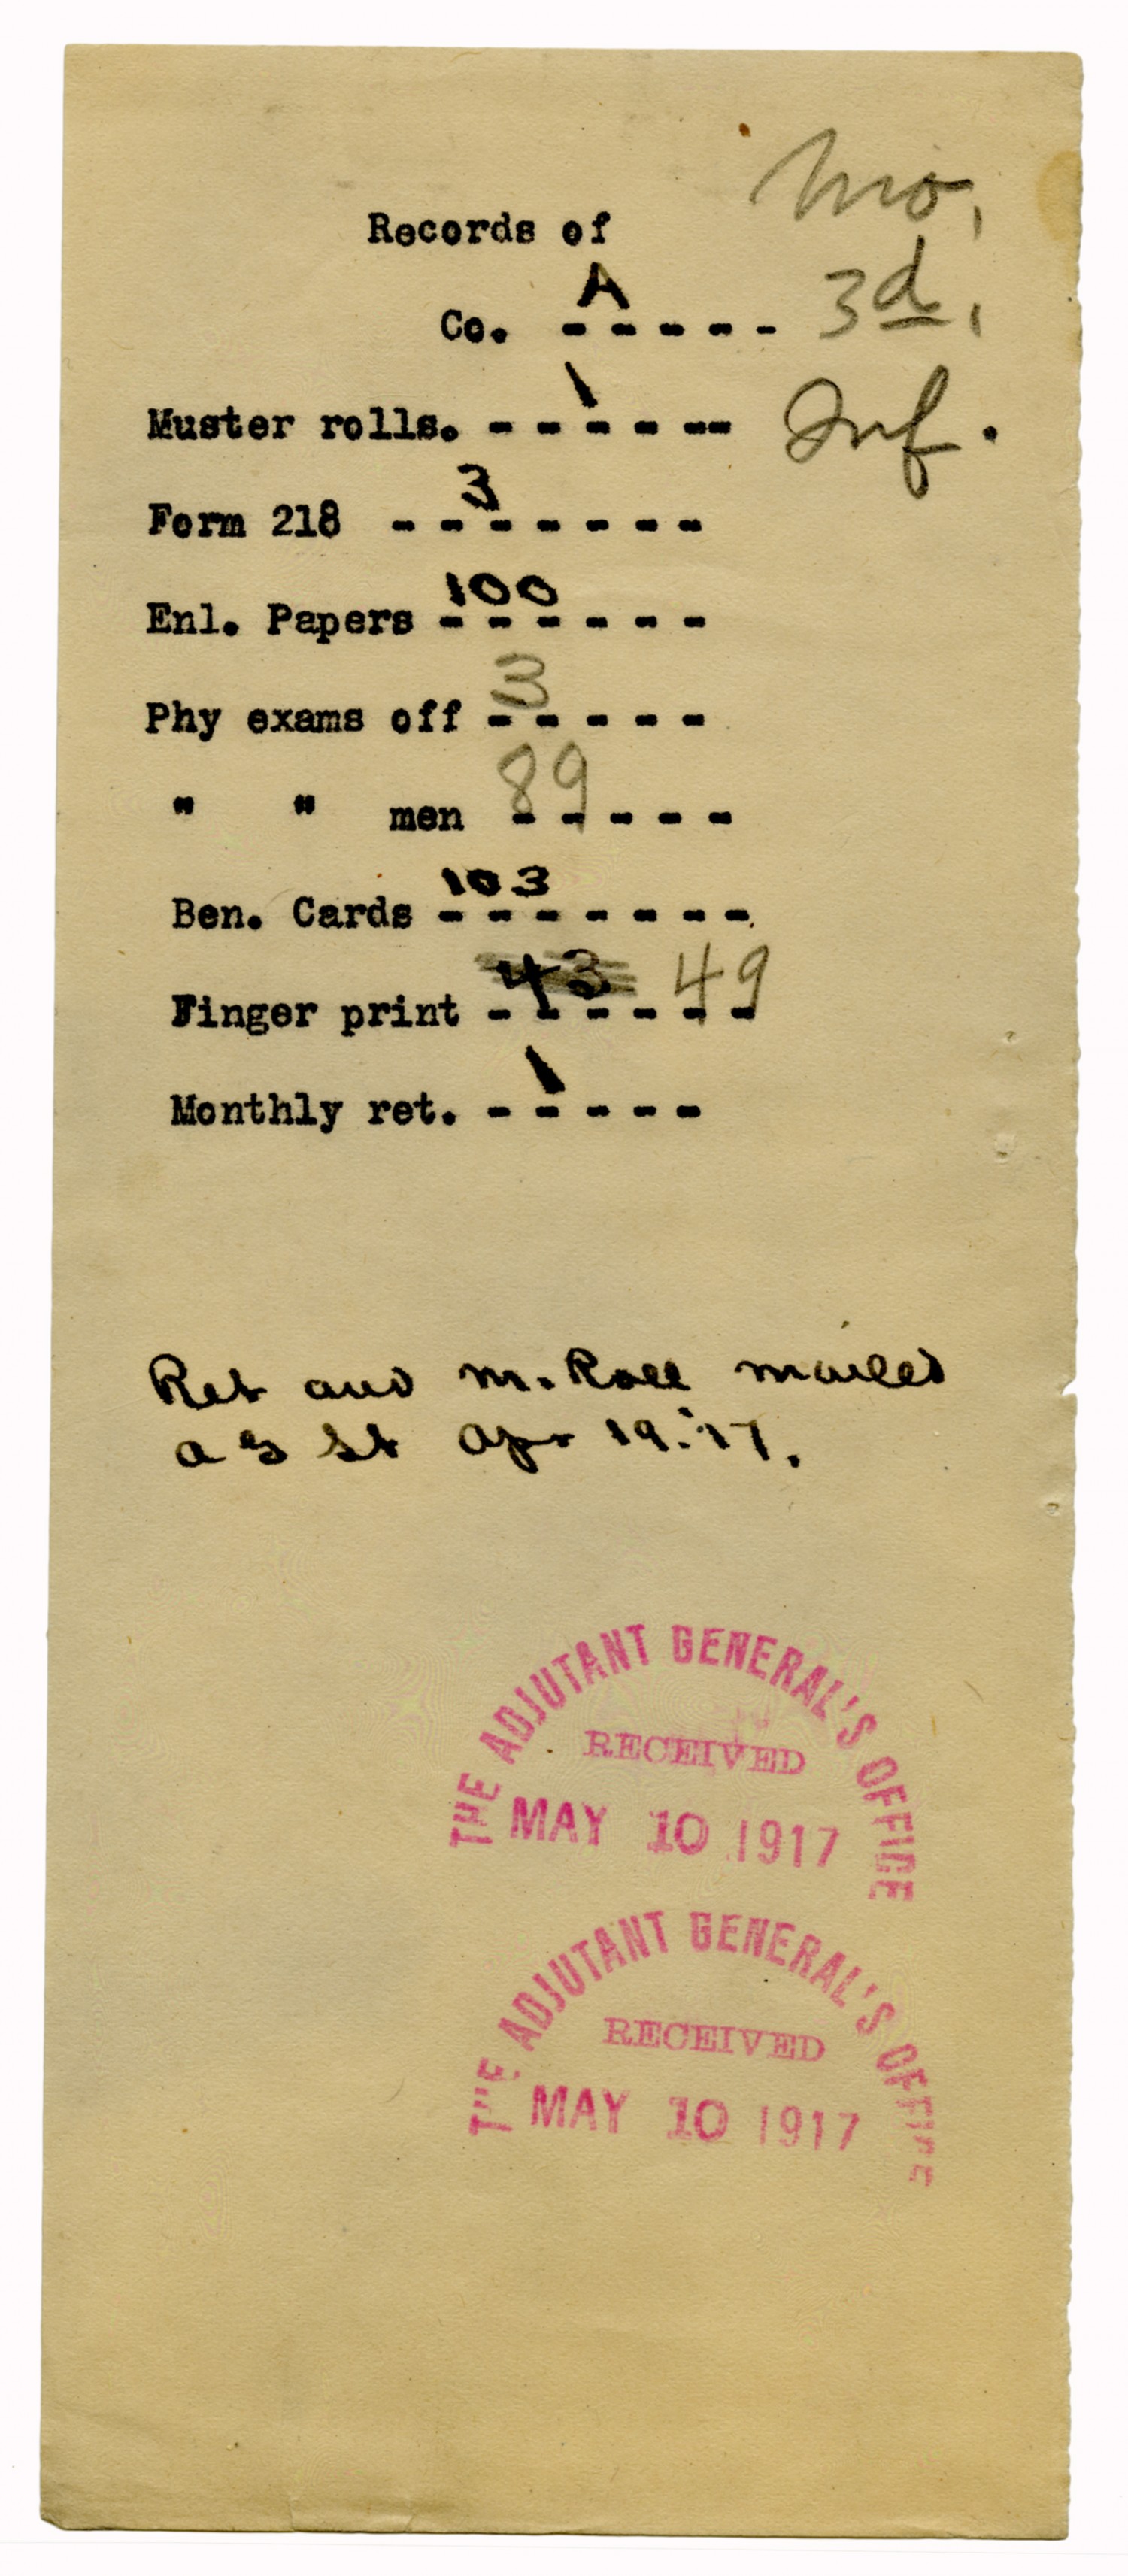 Mo.
Records of
A
Co. - - - - - 3d.
1
Muster rolls. - - - - - - Inf.
3
Form 218 - - - - - - -
100
Enl. Papers - - - - - -
3
Phy exams off - - - - -
89
" " men - - - - -
103
Ben. Cards - - - - - - -
43 49
Finger print - - - - - -
1
Monthly ret. - - - - -
Ret and M. Roll mailed
A G St Apr 19.'17.
THE ADJUTANT GENERAL'S OFFICE
RECEIVED
MAY 10 1917
THE ADJUTANT GENERAL'S OFFICE
RECEIVED
MAY 10 1917